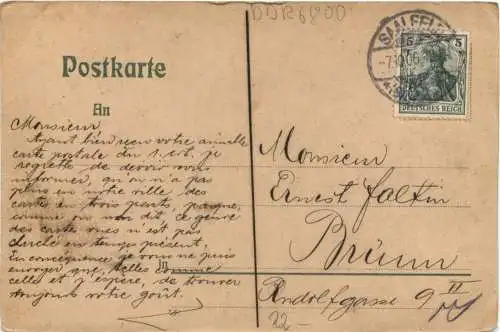 DDR 6800
SAALFELD
-7.10.06
5 5
DEUTSCHES REICH
Postkarte
An
Monsieur,
Ayant bien reçu votre aimable
carte postale du 1. crt. je
regrette de devoir vous
informer, qu'on n'a pas
plus en notre ville des
cartes en trois parts,
comme on dit, ce genre
des cartes n'est pas
cherché en temps présent.
En conséquence je vous ne puis
envoyer que telles comme
celle et j'espère, de trouver
toujours votre goût.
Monsieur
Ernest Faltin
in Brünn
Rudolfgasse 9 II
22-